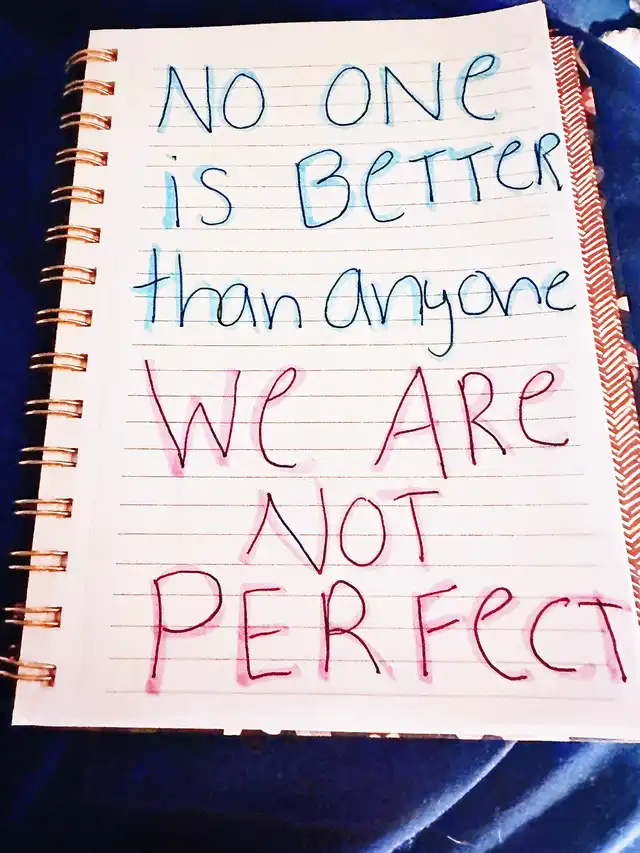 NO ONe
is BeTTeR
than anyone
We ARe
NOT
PERFeCT